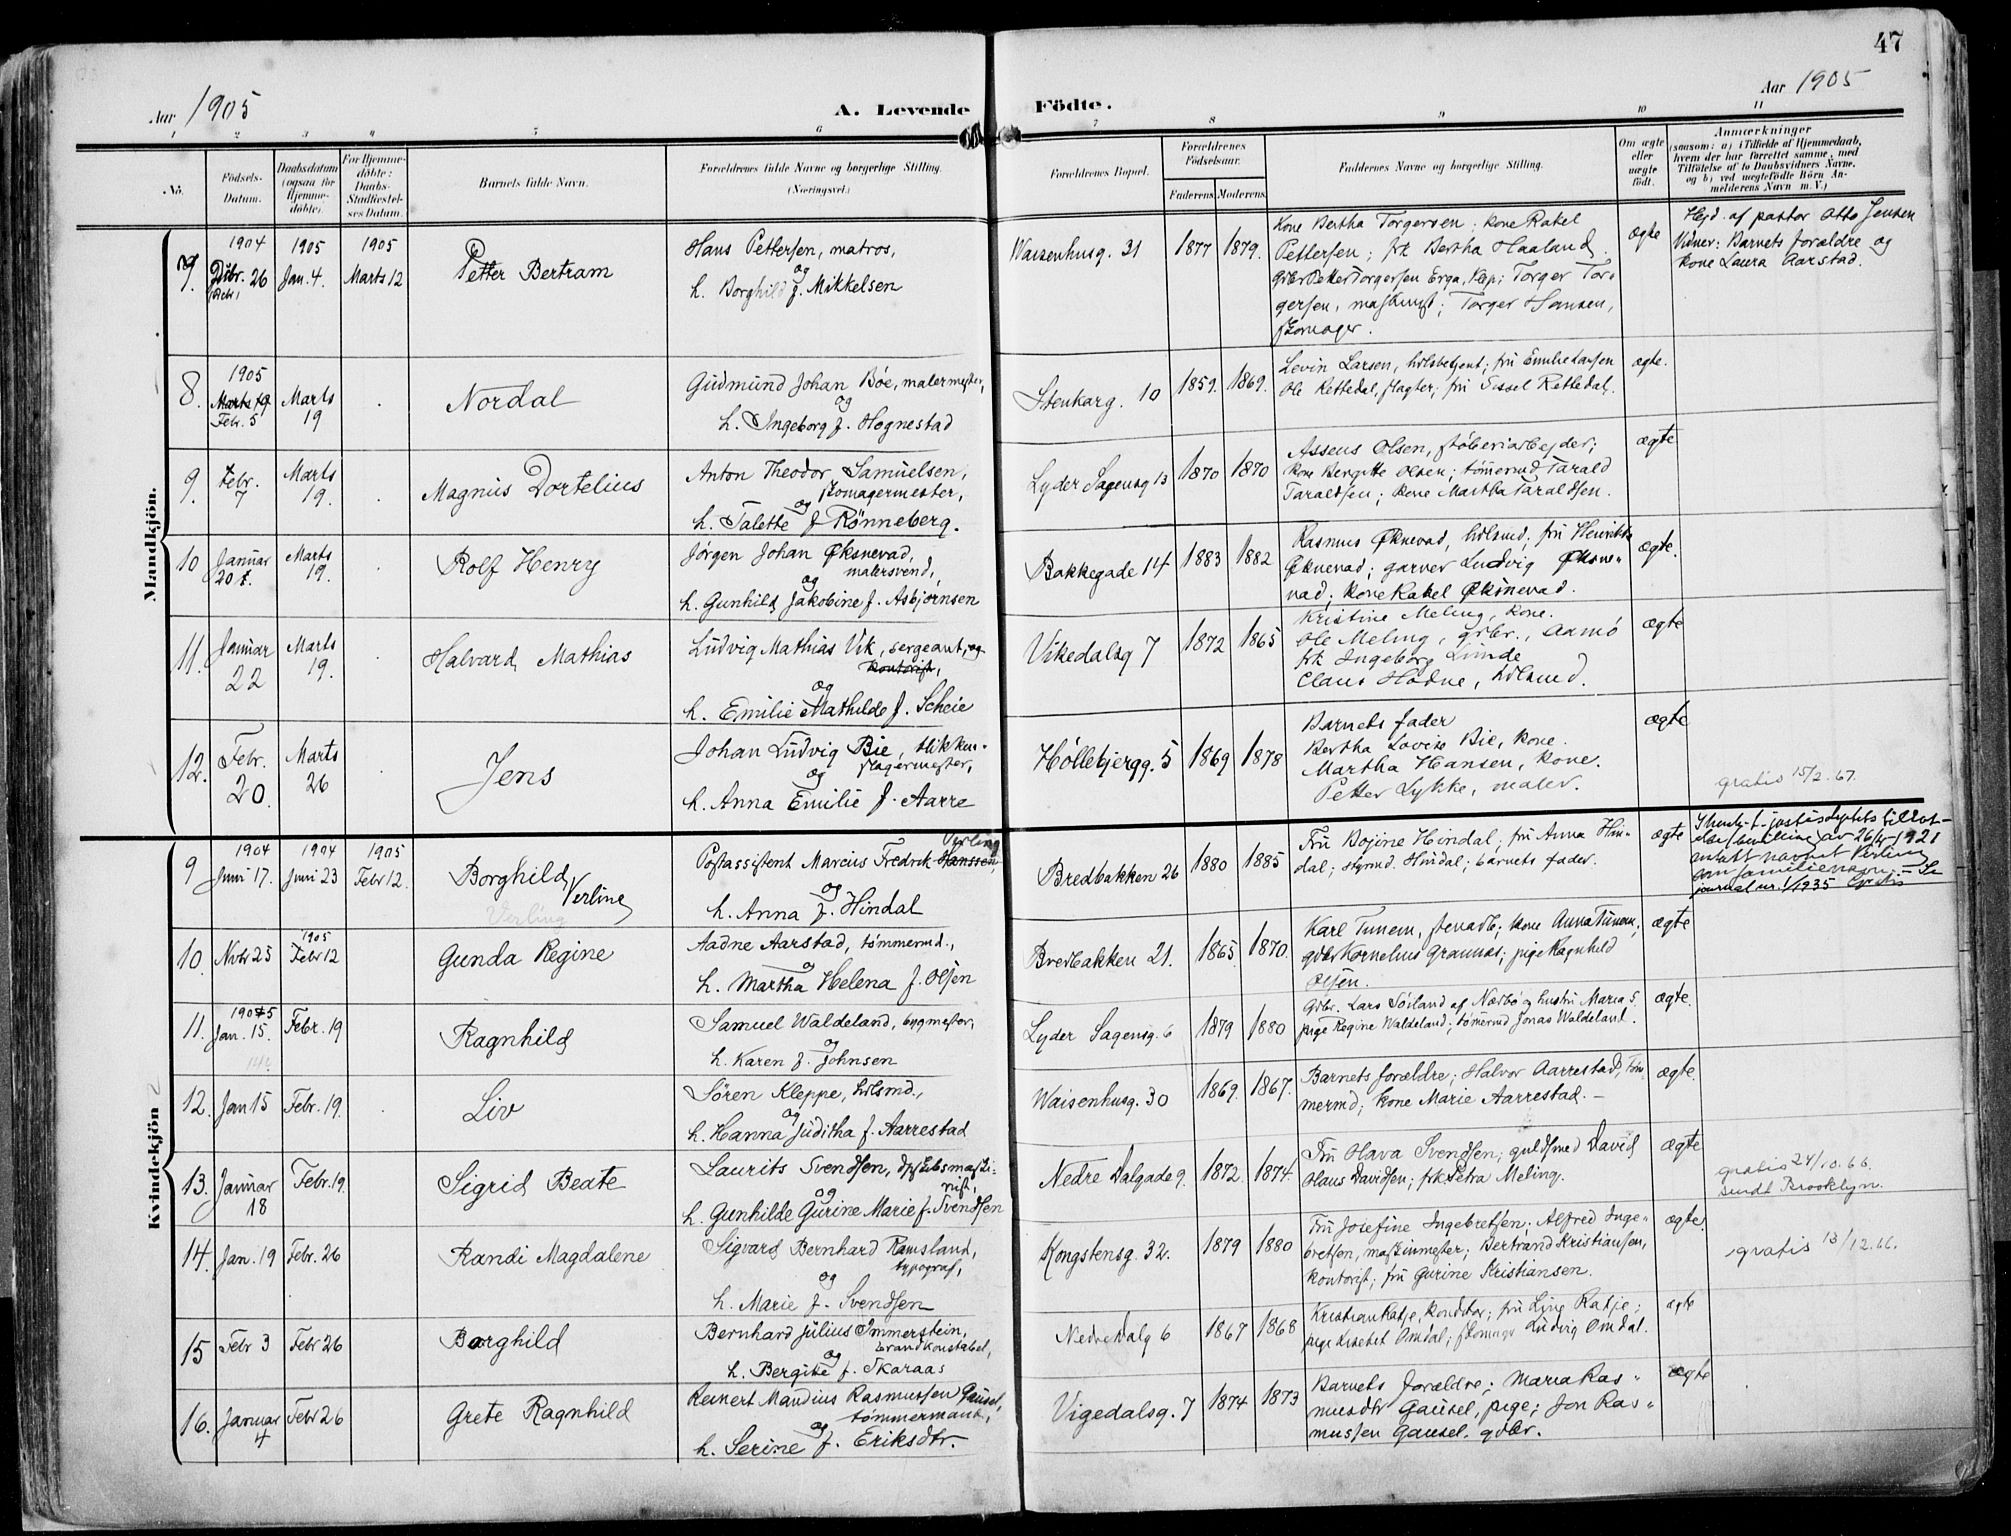 47
Aar 1905
A. Levende Födte.
Aar 1905
1 2 3 4 5 6 7 8 9 10 11
No.
Födsels-Datum.
Daabsdatum (ogsaa for Hjemmedöbte).
For Hjemmedöbte: Daabs-Stadfæstelses Datum.
Barnets fulde Navn.
Forældrenes fulde Navne og borgerlige Stilling. (Næringsvei.)
Forældrenes Bopæl.
Forældrenes Födselsaar.
Faderens
Moderens
Faddernes Navne og borgerlige Stilling.
Om ægte eller uægte födt.
Anmærkninger
(saasom: a) i Tilfælde af Hjemmedaab, hvem der har forrettet samme, med Tilföielse af to Daabsvidners Navne, og b) ved uægtefödte Börn Anmelderens Navn m. V.)
Mandkjön.
7. 1904 Dcbr. 26 (Dcbr)
1905 Jan. 4.
1905 Marts 12
Petter Bertram
Hans Pettersen, matros,
og
h. Borghild f. Mikkelsen
Waisenhusg. 31
1877 1879.
Kone Bertha Torgersen; kone Rakel
Pettersen; frk Bertha Haaland.
Gbr Petter Torgersen Erga, Klep; Torger Tor=
gersen, maskinist; Torger Hansen,
skomager.
ægte
Hjd. af pastor Otto Jensen
Vidner: Barnets forældre og
kone Laura Aarstad.
8. 1905 Marts 19 Febr. 5
Marts 19
Nordal
Gudmund Johan Bøe, malermester,
og
h. Ingeborg f. Hognestad
Stenkarg. 10
1859. 1869.
Levin Larsen, hdlsbetjent; fru Emilie Larsen
Ole Rettedal, slagter; fru Sissel Rettedal.
ægte.
9. Febr. 7
Marts 19.
Magnus Dortelius
Anton Theodor Samuelsen,
skomagermester,
og
h. Talette f Rönneberg.
Lyder Sagensg 13
1870 1870
Asseus Olsen, støberiarbejder;
kone Bergitte Olsen; tömermd Tarald
Taraldsen; kone Martha Taraldsen.
ægte
10 Januar 20.
Marts 19.
Rolf Henry
Jörgen Johan Øksnevad,
malersvend,
og
h. Gunhild Jakobine f. Asbjørnsen
Bakkegade 14
1883 1882
Rasmus Øknevad, hdlsmd; fru Henrikke
Øknevad; garver Ludvig Øksne=
vad; kone Rakel Øksnevad.
ægte.
11. Januar 22
Marts 19.
Halvard Mathias
Ludvig Mathias Vik, sergeant, og
kontorist,
og
h. Emilie Mathilde f. Scheie
Vikedalsg 7
1872 1865
Kristine Meling, kone.
Ole Meling, grbr., Aamö
frk Ingeborg Lunde
Claus Hodne, hdlsmd.
ægte
12. Febr. 20.
Marts 26
Jens
Johan Ludvig Bie, blikken-
slagermester,
og
h. Anna Emilie f. Aarre
Høllebjergg. 5
1869 1878
Barnets fader
Bertha Lovise Bie, kone.
Martha Hansen, kone.
Petter Lykke, maler.
ægte
gratis 15/2.67.
Kvindekjön
9 1904 Juni 17.
1904 Juni 23
1905 Febr 12.
Borghild Verling
Verling
Verling
Postassistent Marcus Fredrik Hanssen,
og
h. Anna f. Hindal
Bredbakken 26
1880 1885
Fru Bojine Hindal; fru Anna Hin-
dal; styrmd. Hindal; barnets fader.
ægte
justisdeptets tillat-
av 26/4-1921
antatt navnet Verling
som familienavn. – Se
journal nr. 1/1935
10. Nvbr 25
1905 Febr 12
Gunda Regine
Aadne Aarstad, tømmermd.,
og
h. Martha Helena f. Olsen
Bredbakken 21.
1865 1870.
Karl Tunem, kone Anna Tunem,
gdbr Kornelius Grannes; pige Ragnhild
Olsen.
ægte
11. 1905 Jan. 15.
Febr. 19
Ragnhild
Samuel Waldeland, bygmester,
og
h. Karen f. Johnsen
Lyder Sagensg. 6
1879 1880
Grbr. Lars Söiland af Nærbö og hustru Maria S.
pige Regine Waldeland; tömermd Jonas Waldeland.
ægte.
12. Jan 15
Febr. 19.
Liv
Sören Kleppe, hdlsmd.,
og
h. Hanna Juditha f. Aarrestad
Waisenhusg. 30
1869. 1867.
Barnets forældre; Halvor Aarrestad, töm-
mermd; kone Marie Aarrestad. –
ægte.
13. Januar 18
Febr. 19
Sigrid Beate
Laurits Svendsen, dpskibsmaski-
nist,
og
h. Gunhilde Gurine Marie f. Svendsen
Nedre Dalgade 9.
1872. 1874.
Fru Olava Svendsen; guldsmed David
Olaus Davidsen; frk. Petra Meling.
ægte
gratis 24/10.66.
sendt Brooklyn.
14. Jan. 19
Febr. 26
Randi Magdalene
Sigvard Bernhard Ramsland,
typograf,
og
h. Marie f. Svendsen
Kongstensg. 32.
1879 1880
Fru Josefine Ingebretsen; Alfred Inge=
bretsen, maskinmester; Bertrand Kristiansen,
kontorist; fru Gurine Kristiansen.
ægte.
gratis 13/12.66.
15 Febr 3
Febr 26
Borghild
Bernhard Julius Immerstein,
brandkonstabel,
og
h. Bergitte f. Skaraas
Nedre Dalg 6
1867 1868
Kristian Ratje, konditor; fru Line Ratje;
pige Lisebet Omdal; skomagr Ludvig Omdal.
ægte
16. Januar 4
Febr 26
Grete Ragnhild
Reinert Mandius Rasmussen Gausel,
tømmermand,
og
h. Serine f. Eriksdtr.
Vigedalsg. 7
1874 1873
Barnets forældre; Maria Ras=
musdtr Gausel, pige; Jon Ras=
mussen Gausel. gdbr.
ægte